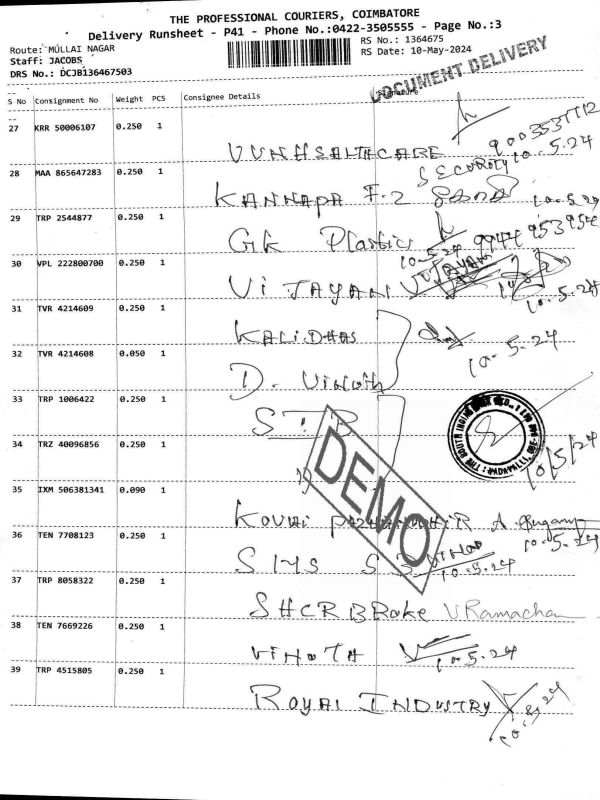 THE PROFESSIONAL COURIERS, COIMBATORE
Delivery Runsheet - P41 - Phone No.:0422-3505555 - Page No.:3
Route: MULLAI NAGAR
RS No.: 1364675
Staff: JACOBS
RS Date: 10-May-2024
DRS No.: DCJB136467503
DOCUMENT DELIVERY
S No Consignment No Weight PCS Consignee Details Signature
27 KRR 50006107 0.250 1
9003537112
10.5.24
28 MAA 865647283 0.250 1
SECURITY
KANNAPA F-2
10.5.24
29 TRP 2544877 0.250 1
GK Plastics
9944 953954
10.5.24
30 VPL 222800700 0.250 1
VIJAYAN VIJAYAN
10.5.24
31 TVR 4214609 0.250 1
KALIDHAS
10.5.24
32 TVR 4214608 0.050 1
D. Vinoth
33 TRP 1006422 0.250 1
SIB
THE SOUTH INDIAN BANK
VADAVALLI
34 TRZ 40096856 0.250 1
10/5/24
DEMO
35 IXM 506381341 0.090 1
KOVAI PAZHAMUDHIR
10.5.24
36 TEN 7708123 0.250 1
10.5.24
37 TRP 8058322 0.250 1
Brake V Ramachan
38 TEN 7669226 0.250 1
VINOTH
10.5.24
39 TRP 4515805 0.250 1
ROYAL INDUSTRY
10.5.24